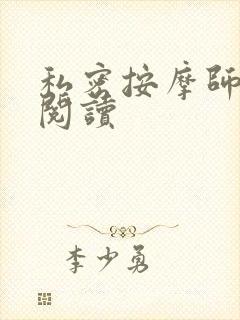 私密按摩師
閱讀
李少勇